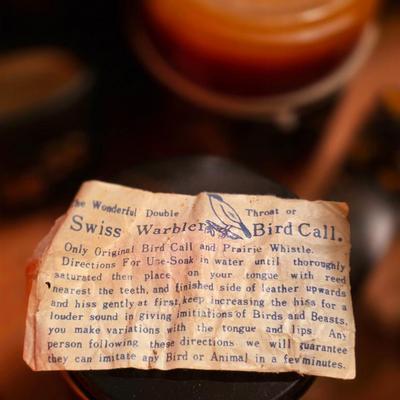 The Wonderful Double Throat or
Swiss Warbler Bird Call.
Only Original Bird Call and Prairie Whistle.
Directions For Use-Soak in water until thoroughly
saturated then place on your tongue with reed
nearest the teeth, and finished side of leather upwards
and hiss gently at first, keep increasing the hiss for a
louder sound in giving imitiations of Birds and Beasts,
you make variations with the tongue and lips. Any
person following these directions we will guarantee
they can imitate any Bird or Animal in a few minutes.